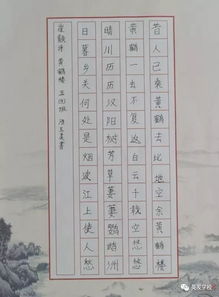 昔人已乘黄鹤去此地空余黄鹤楼
黄鹤一去不复返白云千载空悠悠
晴川历历汉阳树芳草萋萋鹦鹉洲
日暮乡关何处是烟波江上使人愁
崔颢诗 黄鹤楼
英发学校